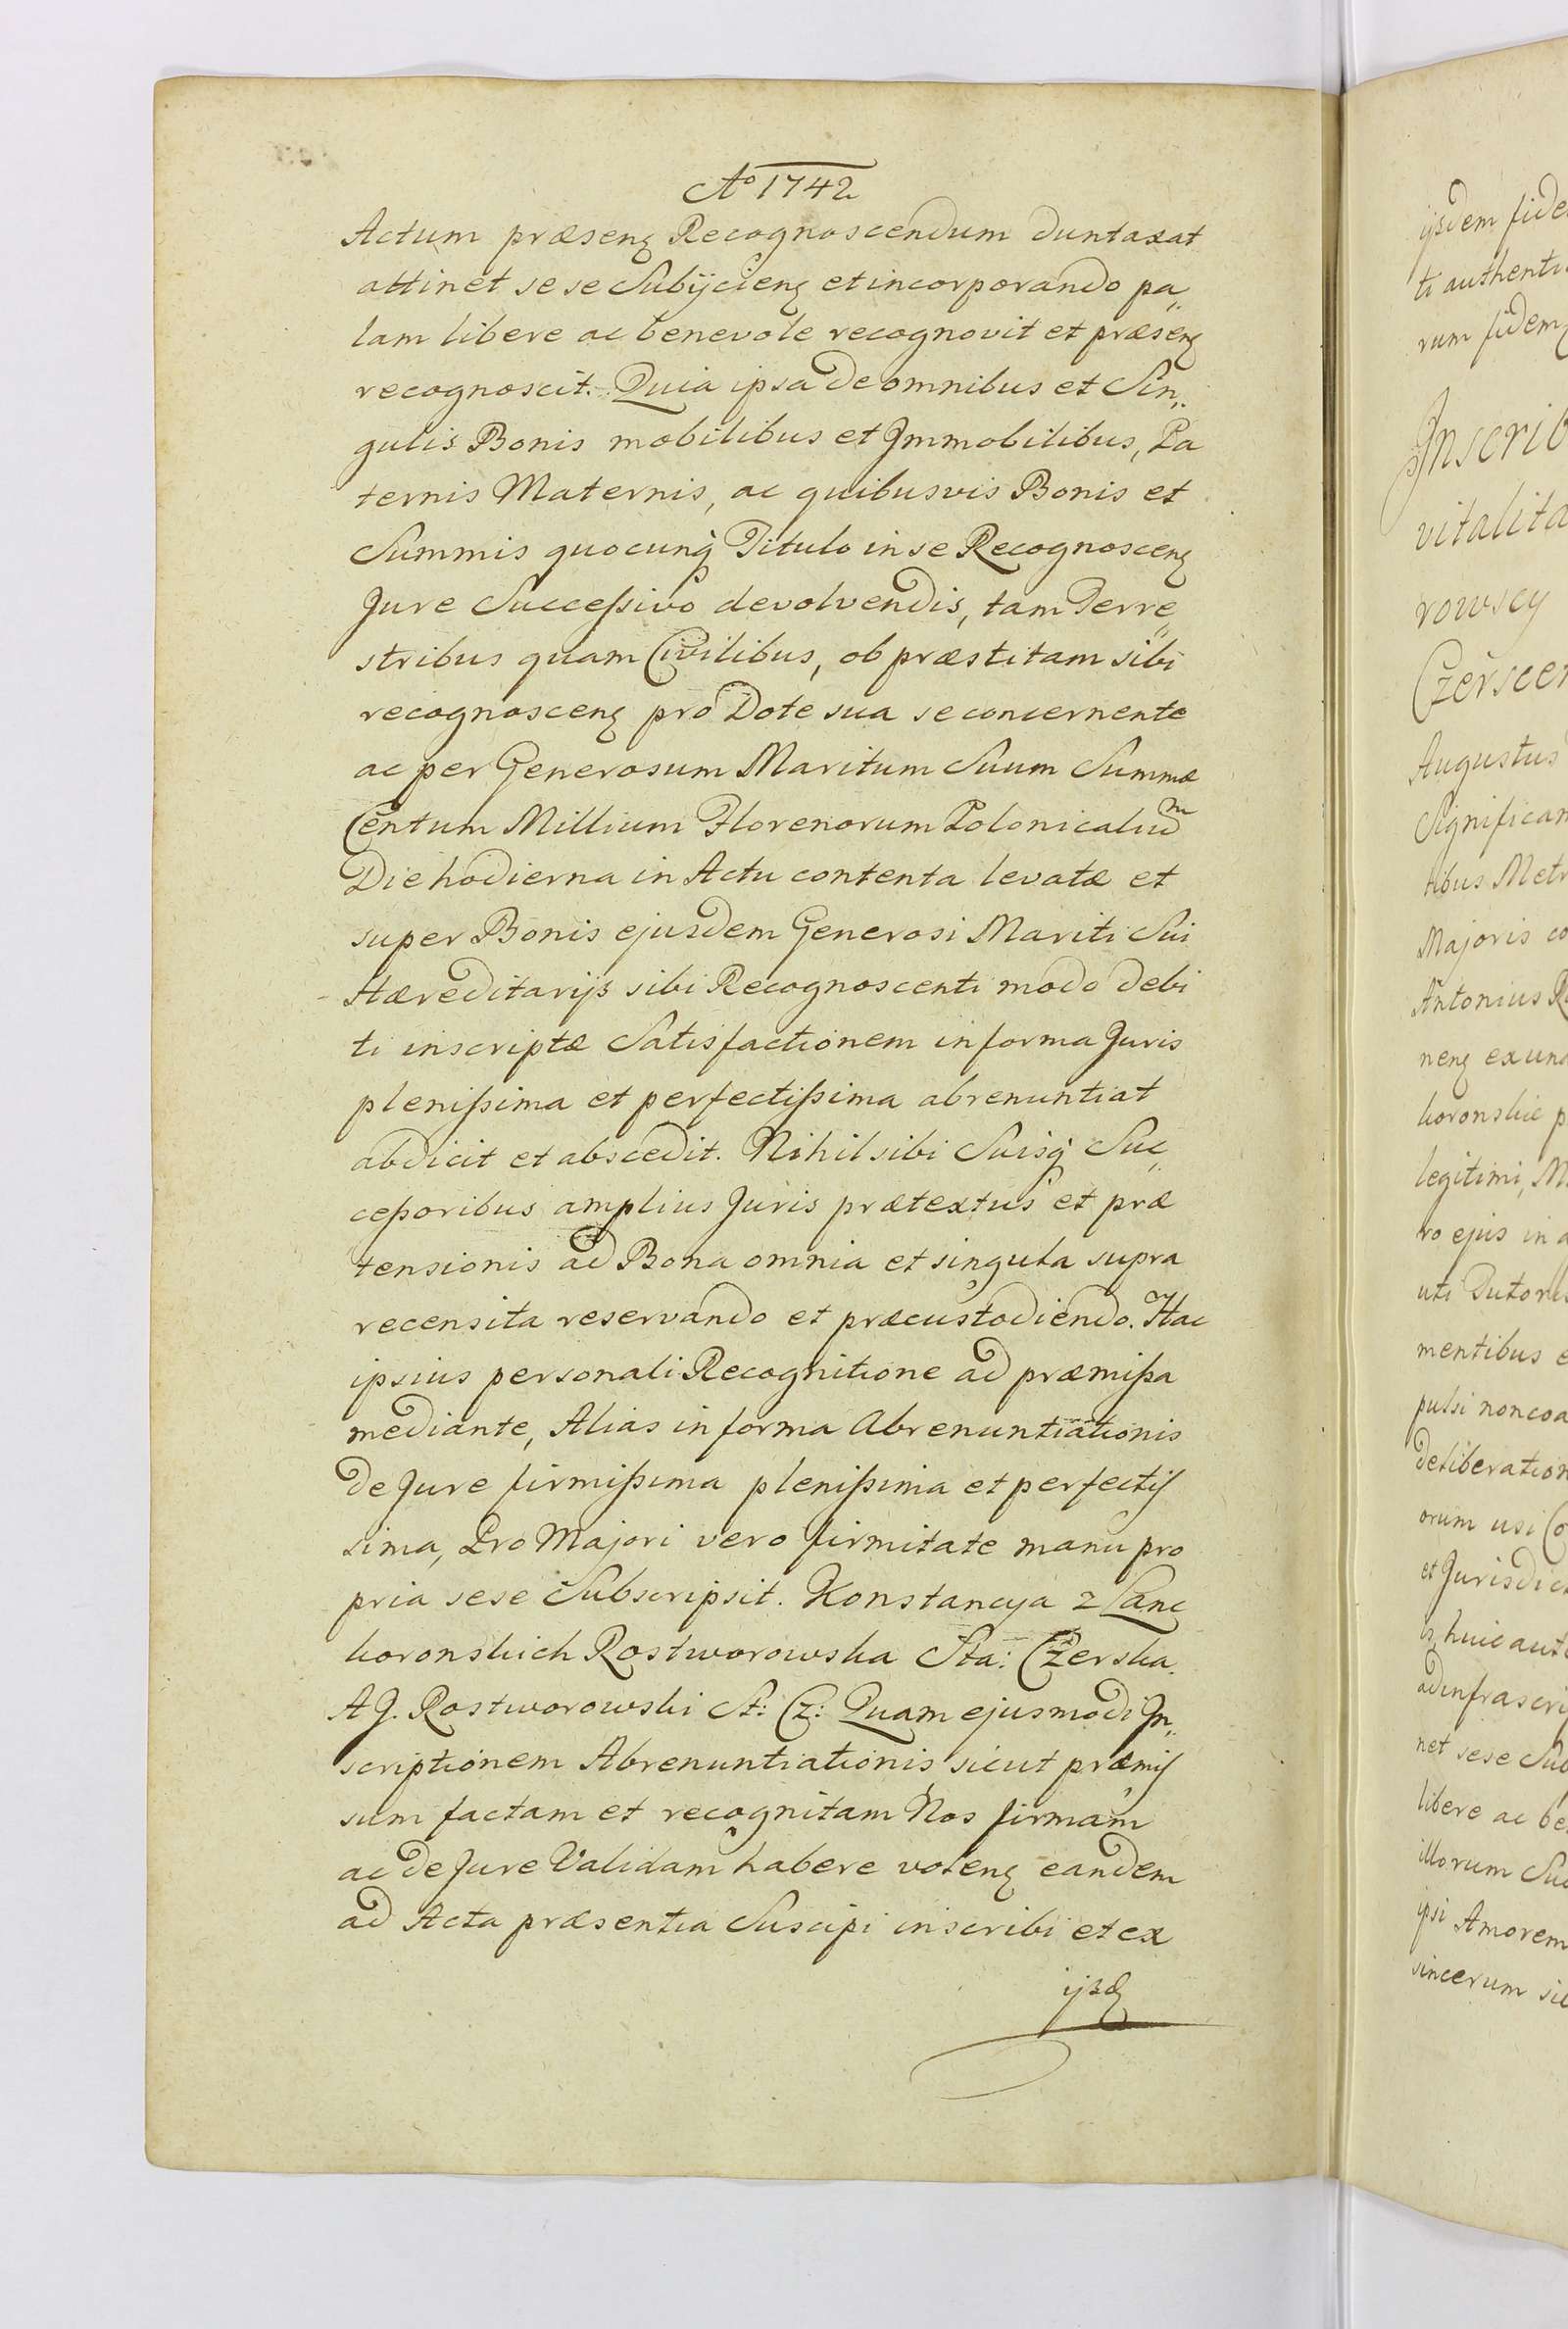 Ao 1742
Actum præsenȝ Recognoscendum duntaxat
attinet sese Subijcienȝ et incorporando pa„
lam libere ac benevole recognovit et præsenȝ
recognoscit. Quia ipsa de omnibus et Sin„
gulis Bonis mobilibus et Immobilibus, Pa
ternis Maternis, ac quibusvis Bonis et
Summis quocunq Titulo in se Recognoscenȝ
Jure Succeſsivo devolvendis, tam Terre„
stribus quam Civilibus, ob præstitam sibi
recognoscenȝ pro Dote sua se concernente
ac per Generosum Maritum Suum Summæ
Centum Millium Florenorum Polonicaliũm
Die hodierna in Actu contenta levatæ et
super Bonis ejusdem Generosi Mariti Sui
Hæreditarijs sibi Recognoscenti modo debi
ti inscriptæ Satisfactionem in forma Juris
pleniſsima et perfectiſsima abrenuntiat
abdicit et abscedit. Nihil sibi Suisq Suc„
ceſsoribus amplius Juris prætextus et præ
tensionis ad Bona omnia et singula supra
recensita reservando et præcustodiendo. Hac
ipsius personali Recognitione ad præmiſsa
mediante, Alias in forma Abrenuntiationis
de Jure firmiſsima pleniſsima et perfectiſ
sima, Pro Majori vero firmitate manu pro
pria sese Subscripsit. Konstancya z Lanc
koronskich Rostworowska Sta: Czerska.
A J. Rostworowski St: Cz: Quam ejusmodi In„
scriptionem Abrenuntiationis, sicut præmiſ
sum factam et recognitam Nos firmam
ac de Jure Validam habere volenȝ eandem
ad Acta præsentia Suscipi inscribi et ex
ijsdȝ
ijsdem fide
ti authenti
rum fidem
Inscrib
vitalita
rowscy
Czerscen
Augustus
Significam
tibus Metr
Majoris co
Antonius R
nenȝ ex una
koronskie p
legitimi, M
ro ejus in a
uti Tutoris
mentibus e
pulsi non coa
deliberation
orum usi Co
et Jurisdict
is, huic aute
ad infrascrip
net sese Sub
libere ac be
illorum Suc
ipsi Amorem
sincerum sib